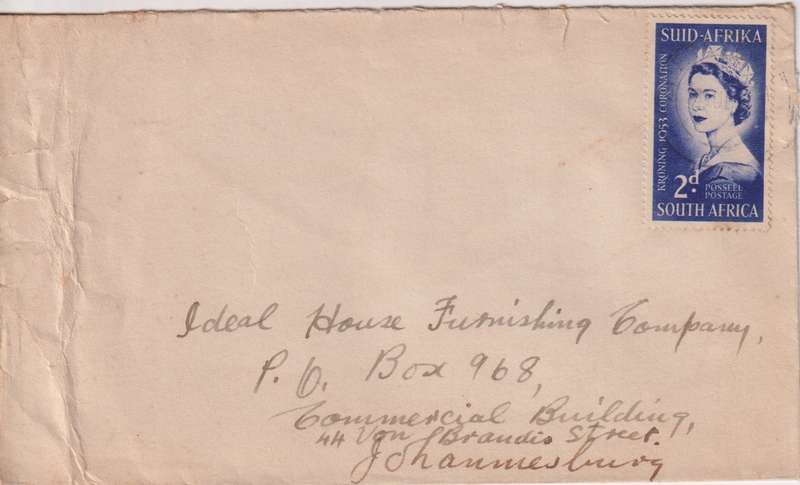 SUID-AFRIKA
KRONING 1953 CORONATION
2d.
POSSEEL
POSTAGE
SOUTH AFRICA
Ideal House Furnishing Company,
P. O. Box 968,
Commercial Building,
44 Von Brandis Street.
Johannesburg